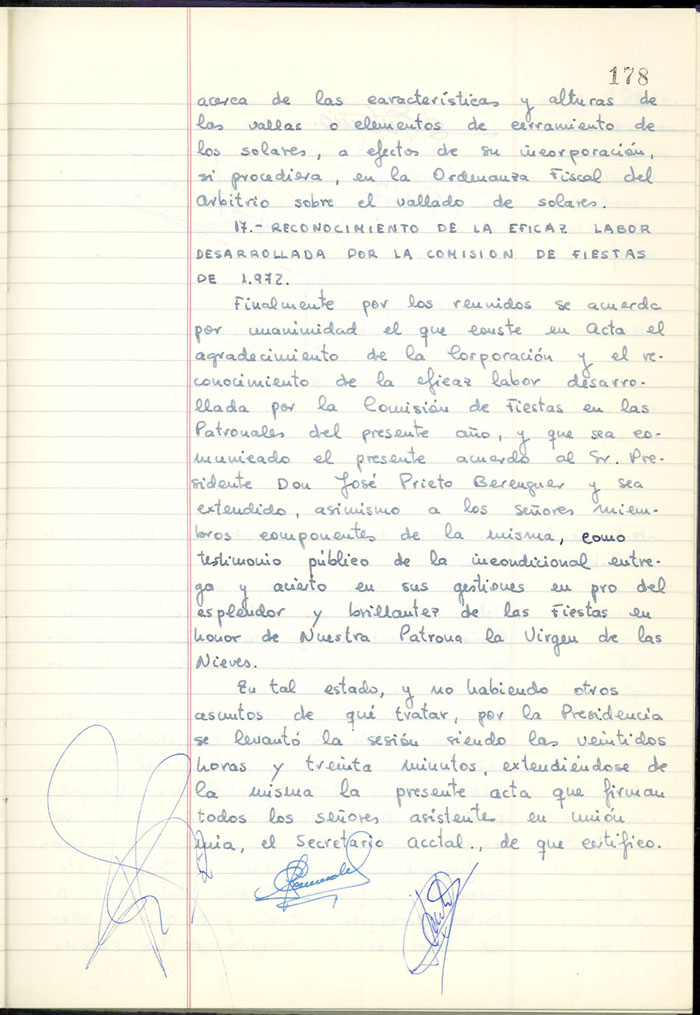 178
acerca de las características y alturas de
las vallas o elementos de cerramiento de
los solares, a efectos de su incorporación,
si procediera, en la Ordenanza Fiscal del
Arbitrio sobre el vallado de solares.
17.- RECONOCIMIENTO DE LA EFICAZ LABOR
DESARROLLADA POR LA COMISION DE FIESTAS
DE 1.972.
Finalmente por los reunidos se acuerda
por unanimidad el que conste en Acta el
agradecimiento de la Corporación y el re-
conocimiento de la eficaz labor desarro-
llada por la Comisión de Fiestas en las
Patronales del presente año, y que sea co-
municado el presente acuerdo al Sr. Pre-
sidente Don José Prieto Berenguer y sea
extendido, asimismo a los señores miem-
bros componentes de la misma, como
testimonio público de la incondicional entre-
ga y acierto en sus gestiones en pro del
esplendor y brillantez de las Fiestas en
honor de Nuestra Patrona la Virgen de las
Nieves.
En tal estado, y no habiendo otros
asuntos de qué tratar, por la Presidencia
se levantó la sesión siendo las veintidos
horas y treinta minutos, extendiéndose de
la misma la presente acta que firman
todos los señores asistentes en unión
mia, el Secretario acctal., de que certifico.